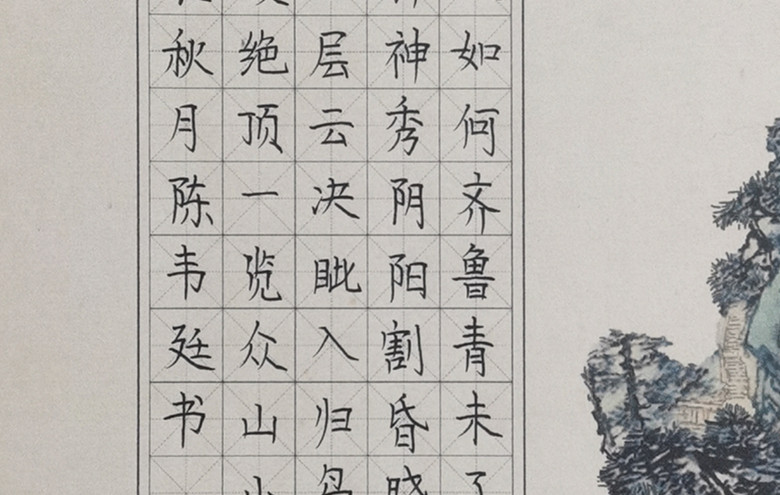 如何齐鲁青未了
神秀阴阳割昏晓
层云决眦入归鸟
绝顶一览众山小
秋月陈韦廷书